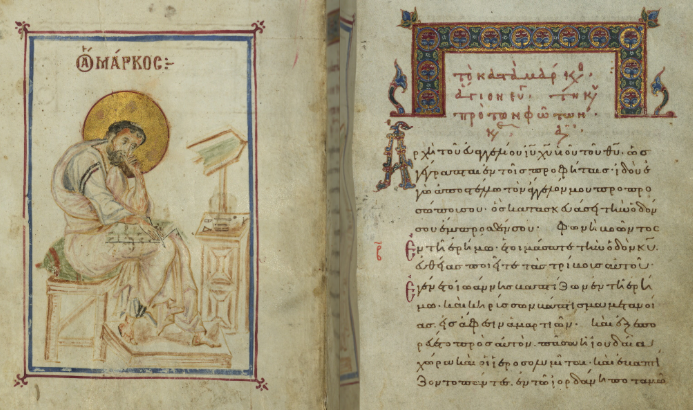 ὁ ἅ ΜΑΡΚΟΣ:-
τὸ κατὰ μάρκον
ἅγιον εὐ. τῇ κυ
πρὸ τῶν φώτων.
Ἀρχὴ τοῦ εὐαγγελίου ἰυ χυ υἱοῦ τοῦ θυ. ὡς
γέγραπται ἐν τοῖς προφήταις. ἰδοὺ ἐ
γὼ ἀποστέλλω τὸν ἄγγελόν μου πρὸ προ
σώπου σου. ὃς κατασκευάσει τὴν ὁδόν
σου ἔμπροσθέν σου. Φωνὴ βοῶντος
Ἐν τῇ ἐρήμω. ἑτοιμάσατε τὴν ὁδὸν κυ
εὐθείας ποιεῖτε τὰς τρίβους αὐτοῦ.
Ἐγένετο ἰωάννης βαπτίζων ἐν τῇ ἐρή
μω. καὶ κηρύσσων βάπτισμα μετανοί
ας. εἰς ἄφεσιν ἁμαρτιῶν. καὶ ἐξεπο
ρεύετο πρὸς αὐτὸν. πᾶσα ἡ ἰουδαία
χώρα καὶ οἱ ἱεροσολυμῖται. καὶ ἐβαπτί
ζοντο πάντες. ἐν τῶ ἰορδάνη ποταμῶ